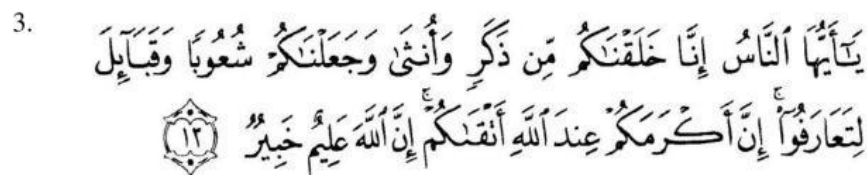 3.
يَـٰٓأَيُّهَا ٱلنَّاسُ إِنَّا خَلَقْنَـٰكُم مِّن ذَكَرٍ وَأُنثَىٰ وَجَعَلْنَـٰكُمْ شُعُوبًا وَقَبَآئِلَ
لِتَعَارَفُوٓا۟ ۚ إِنَّ أَكْرَمَكُمْ عِندَ ٱللَّهِ أَتْقَىٰكُمْ ۚ إِنَّ ٱللَّهَ عَلِيمٌ خَبِيرٌ ﴿١٣﴾